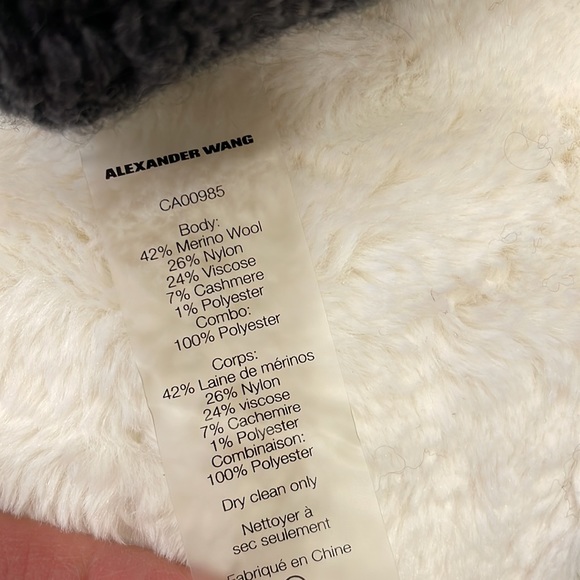 ALEXANDER WANG
CA00985
Body:
42% Merino Wool
26% Nylon
24% Viscose
7% Cashmere
1% Polyester
Combo:
100% Polyester
Corps:
42% Laine de mérinos
26% Nylon
24% viscose
7% Cachemire
1% Polyester
Combinaison:
100% Polyester
Dry clean only
Nettoyer à
sec seulement
Fabriqué en Chine